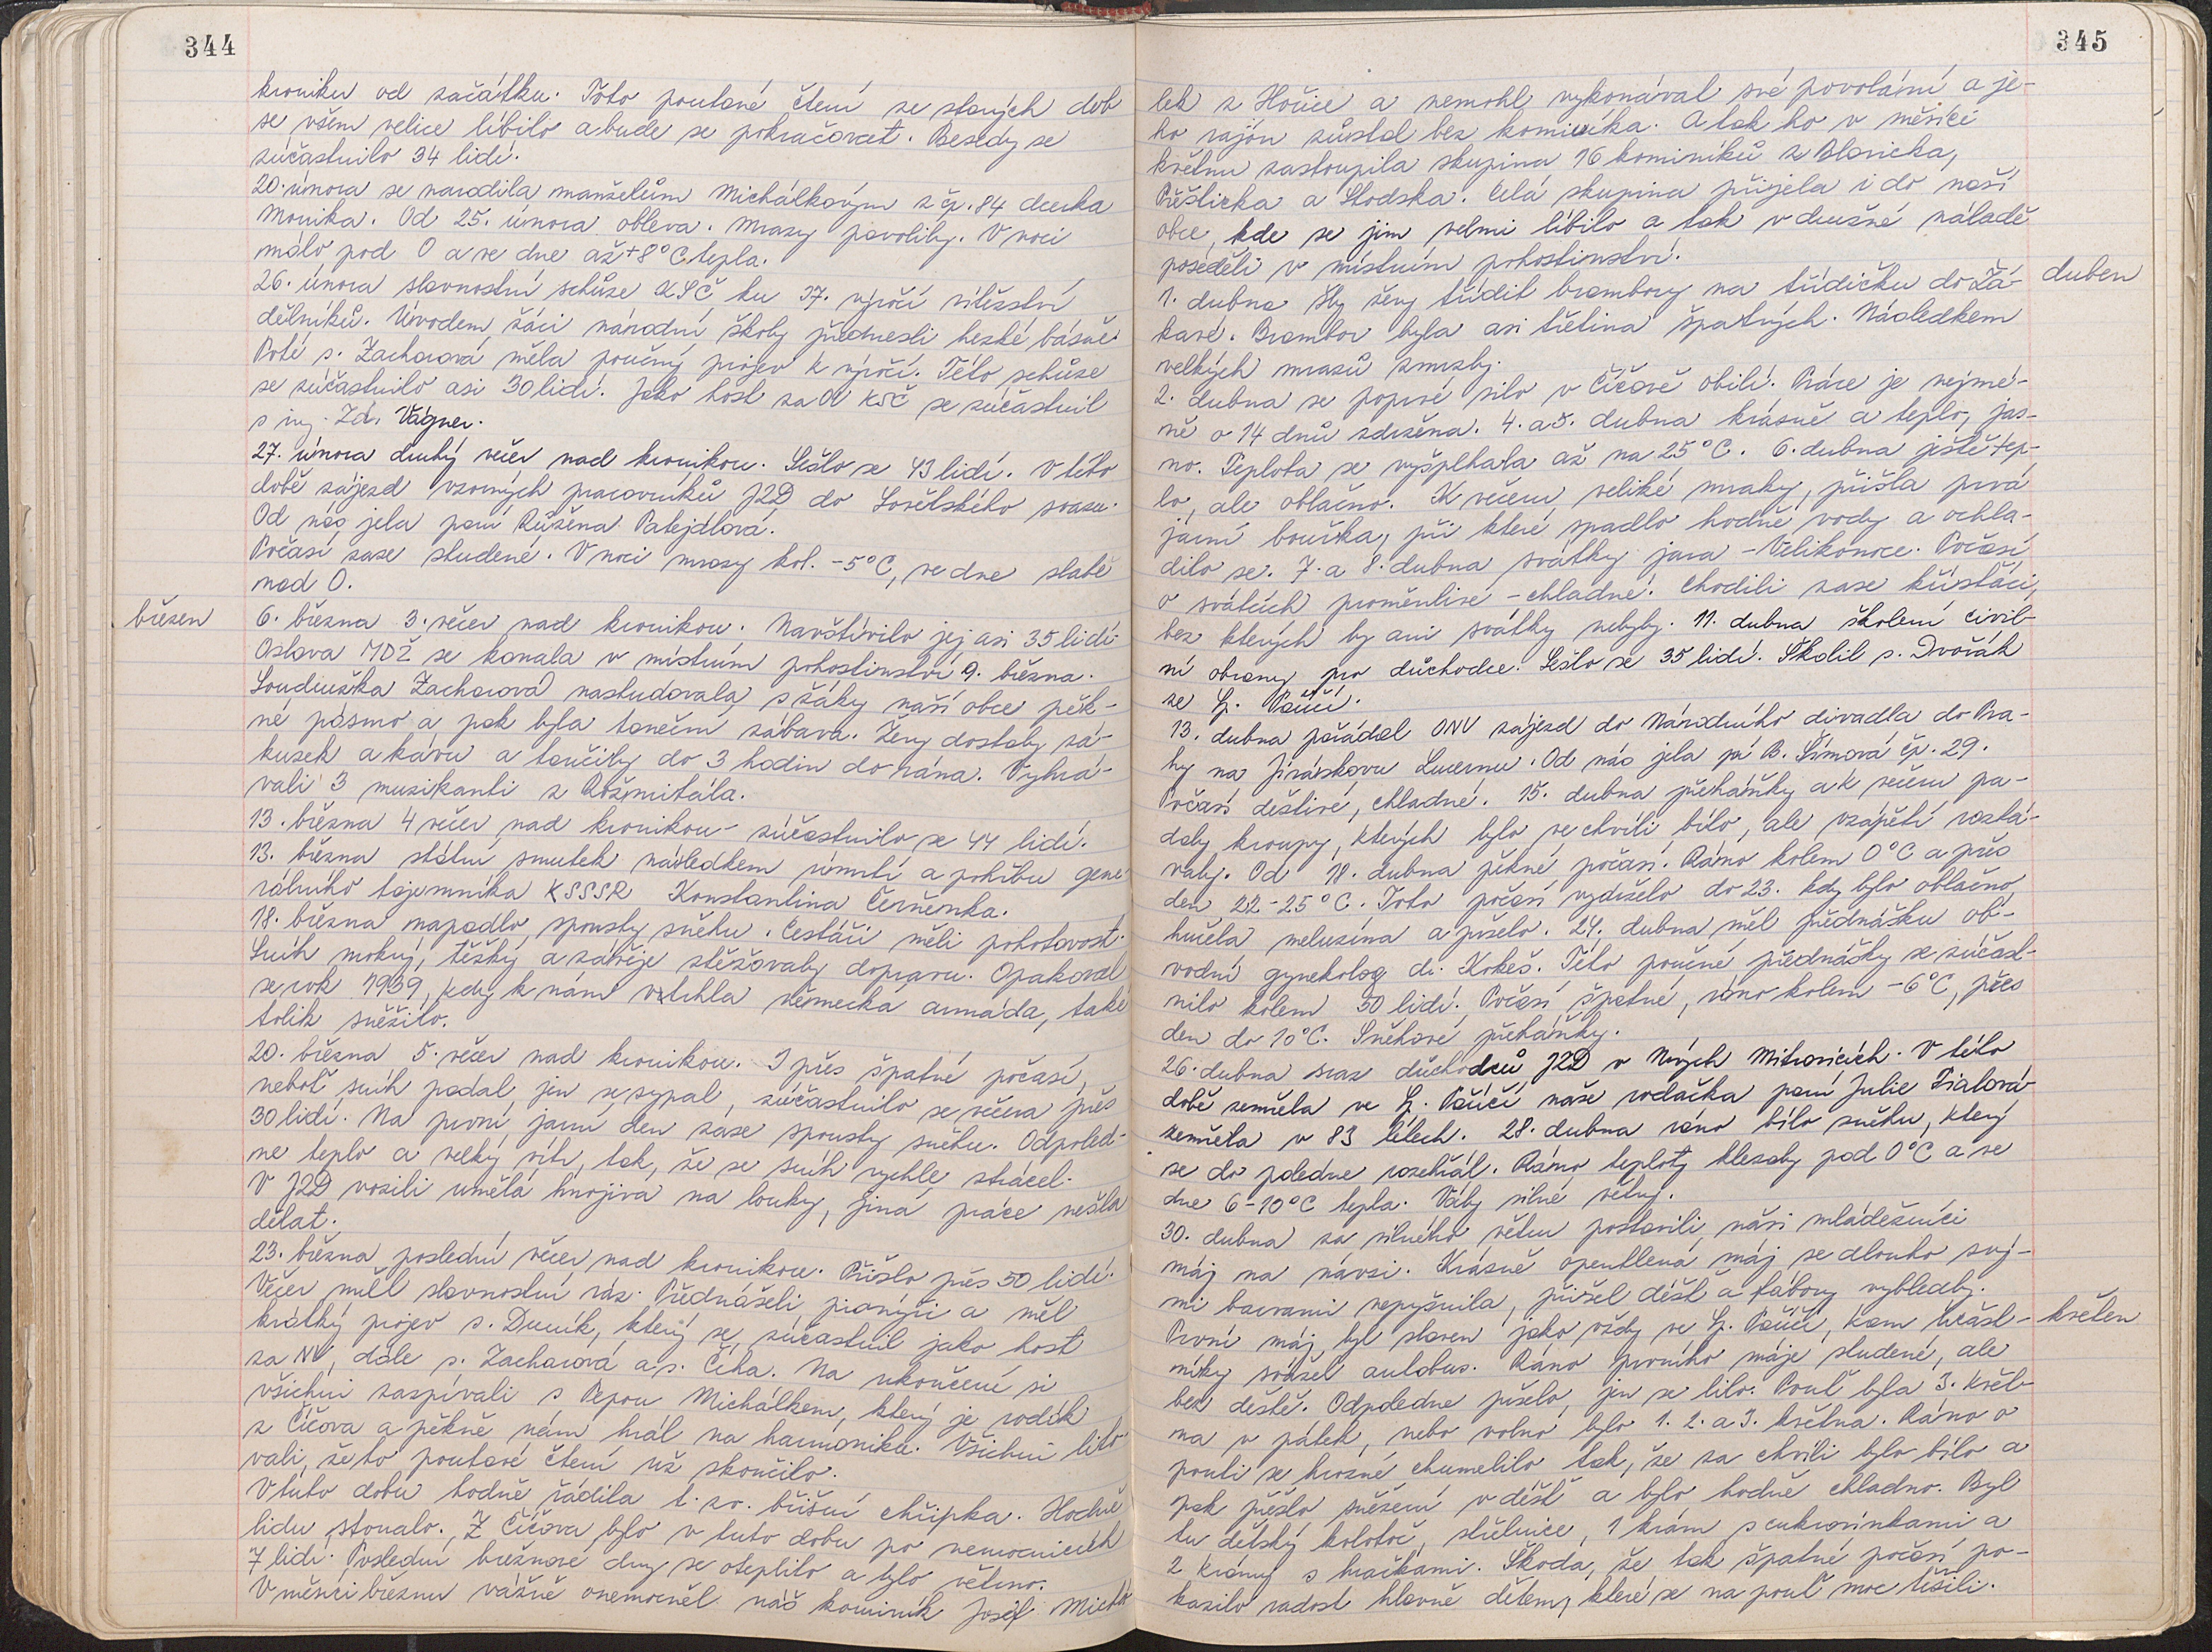 344
kroniku od začátku. Toto poutavé čtení ze starých dob
se všem velice líbilo a bude se pokračovat. Besedy se
zúčastnilo 34 lidí.
20. února se narodila manželům Michálkovým z čp. 84 dcerka
Monika. Od 25. února obleva. Mrazy povolily. V noci
málo pod 0 a ve dne až +8°C tepla.
26. února slavnostní schůze KSČ ku 37. výročí vítězství
dělníků. Úvodem žáci národní školy přednesli hezké básně.
Poté s. Zacharová měla poučný projev k výročí. Této schůze
se zúčastnilo asi 30 lidí. Jako host za OV KSČ se zúčastnil
s ing. Zd. Vágner.
27. února druhý večer nad kronikou. Sešlo se 43 lidí. V této
době zájezd vzorných pracovníků JZD do Sovětského svazu.
Od nás jela paní Růžena Patejdlová.
Počasí zase studené. V noci mrazy kol. -5°C, ve dne slabě
nad 0.
březen
6. března 3. večer nad kronikou. Navštívilo jej asi 35 lidí
Oslava MDŽ se konala v místním pohostinství 9. března.
Soudružka Zacharová nastudovala s žáky naší obce pěk-
né pásmo a pak byla taneční zábava. Ženy dostaly zá-
kusek a kávu a tančily do 3 hodin do rána. Vyhrá-
vali 3 muzikanti z Rožmitála.
13. března 4 večer nad kronikou - zúčastnilo se 44 lidí.
13. března státní smutek následkem úmrtí a pohřbu gene
rálního tajemníka KSSSR Konstantina Černěnka.
18. března napadlo spousty sněhu. Cestáři měli pohotovost.
Sníh mokrý, těžký a závěje stěžovaly dopravu. Opakoval
se rok 1939, kdy k nám vtrhla německá armáda, také
tolik sněžilo.
20. března 5. večer nad kronikou. I přes špatné počasí,
neboť sníh padal, jen se sypal, zúčastnilo se večera přes
30 lidí. Na první jarní den zase spousty sněhu. Odpoled-
ne teplo a velký vítr, tak, že se sníh rychle ztrácel.
V JZD vozili umělá hnojiva na louky, jiná práce nešla
dělat.
23. března poslední večer nad kronikou. Přišlo přes 50 lidí.
Večer měl slavnostní ráz. Přednášeli pionýři a měl
krátký projev s. Duník, který se zúčastnil jako host
za NV, dále s. Zacharová a s. Číha. Na ukončení si
všichni zazpívali s Pepou Michálkem, který je rodák
z Číčova a pěkně nám hrál na harmoniku. Všichni lito
vali, že to poutavé čtení už skončilo.
V tuto dobu hodně řádila t. zv. břišní chřipka. Hodně
lidu stonalo. Z Číčova bylo v tuto dobu po nemocnicích
7 lidí. Poslední březnové dny se oteplilo a bylo větrno.
V měsíci březnu vážně onemocněl náš kominík Josef Micha
345
lek z Hořice a nemohl vykonával své povolání a je-
ho rajón zůstal bez kominíka. A tak ho v měsíci
květnu zastoupila skupina 16 kominíků z Blovicka,
Přešticka a Stodska. Celá skupina přijela i do naší
obce, kde se jim velmi líbilo a tak v družné náladě
poseděli v místním pohostinství.
duben
1. dubna šly ženy třídit brambory na třídičku do Žá-
kavé. Brambor byla asi třetina špatných. Následkem
velkých mrazů zmrzly.
2. dubna se poprvé silo v Číčově obilí. Práce je nejmé-
ně o 14 dnů zdržena. 4. a 5. dubna krásně a teplo, jas-
no. Teplota se vyšplhala až na 25°C. 6. dubna ještě tep-
lo, ale oblačno. K večeru veliké mraky, přišla prvá
jarní bouřka, při které spadlo hodně vody a ochla-
dilo se. 7. a 8. dubna svátky jara - Velikonoce. Počasí
o svátcích proměnlivé - chladné. Chodili zase klásťáci,
bez kterých by ani svátky nebyly. 11. dubna školení civil-
ní obrany pro důchodce. Sešlo se 35 lidí. Školil s. Dvořák
ze Sp. Poříčí.
13. dubna pořádal ONV zájezd do Národního divadla do Pra-
hy na Jiráskovu Lucernu. Od nás jela pí B. Šímová čp. 29.
Počasí deštivé, chladné. 15. dubna přeháňky a k večeru pa-
daly kroupy, kterých bylo ve chvíli bílo, ale vzápětí roztá-
valy. Od 18. dubna pěkné počasí. Ráno kolem 0°C a přes
den 22-25°C. Toto počasí vydrželo do 23. kdy bylo oblačno,
hučela meluzína a pršelo. 24. dubna měl přednášku ob-
vodní gynekolog dr. Kokeš. Této poučné přednášky se zúčast-
nilo kolem 50 lidí. Počasí špatné, ráno kolem -6°C, přes
den do 10°C. Sněhové přeháňky.
26. dubna sraz důchodců JZD v Nových Mitrovicích. V této
době zemřela ve Sp. Poříčí naše rodačka paní Julie Fialová
zemřela v 83 letech. 28. dubna ráno bílo sněhu, který
se do poledne rozehřál. Ráno teploty klesaly pod 0°C a ve
dne 6-10°C tepla. Vály silné větry.
30. dubna za silného větru postavili naši mládežníci
máj na návsi. Krásně opentlená máj se dlouho svý-
mi barvami nepyšnila, přišel déšť a fábory vybledly.
květen
První máj byl slaven jako vždy ve Sp. Poříčí, kam účast-
níky svážel autobus. Ráno prvního máje studené, ale
bez deště. Odpoledne pršelo, jen se lilo. Pouť byla 3. květ-
na v pátek, nebo volno bylo 1. 2. a 3. května. Ráno o
pouti se hrozně chumelilo tak, že za chvíli bylo bílo a
pak přešlo sněžení v déšť a bylo hodně chladno. Byl
tu dětský kolotoč, střelnice, 1 krám s cukrovinkami a
2 krámy s hračkami. Škoda, že tak špatné počasí po-
kazilo radost hlavně dětem, které se na pouť moc těšili.